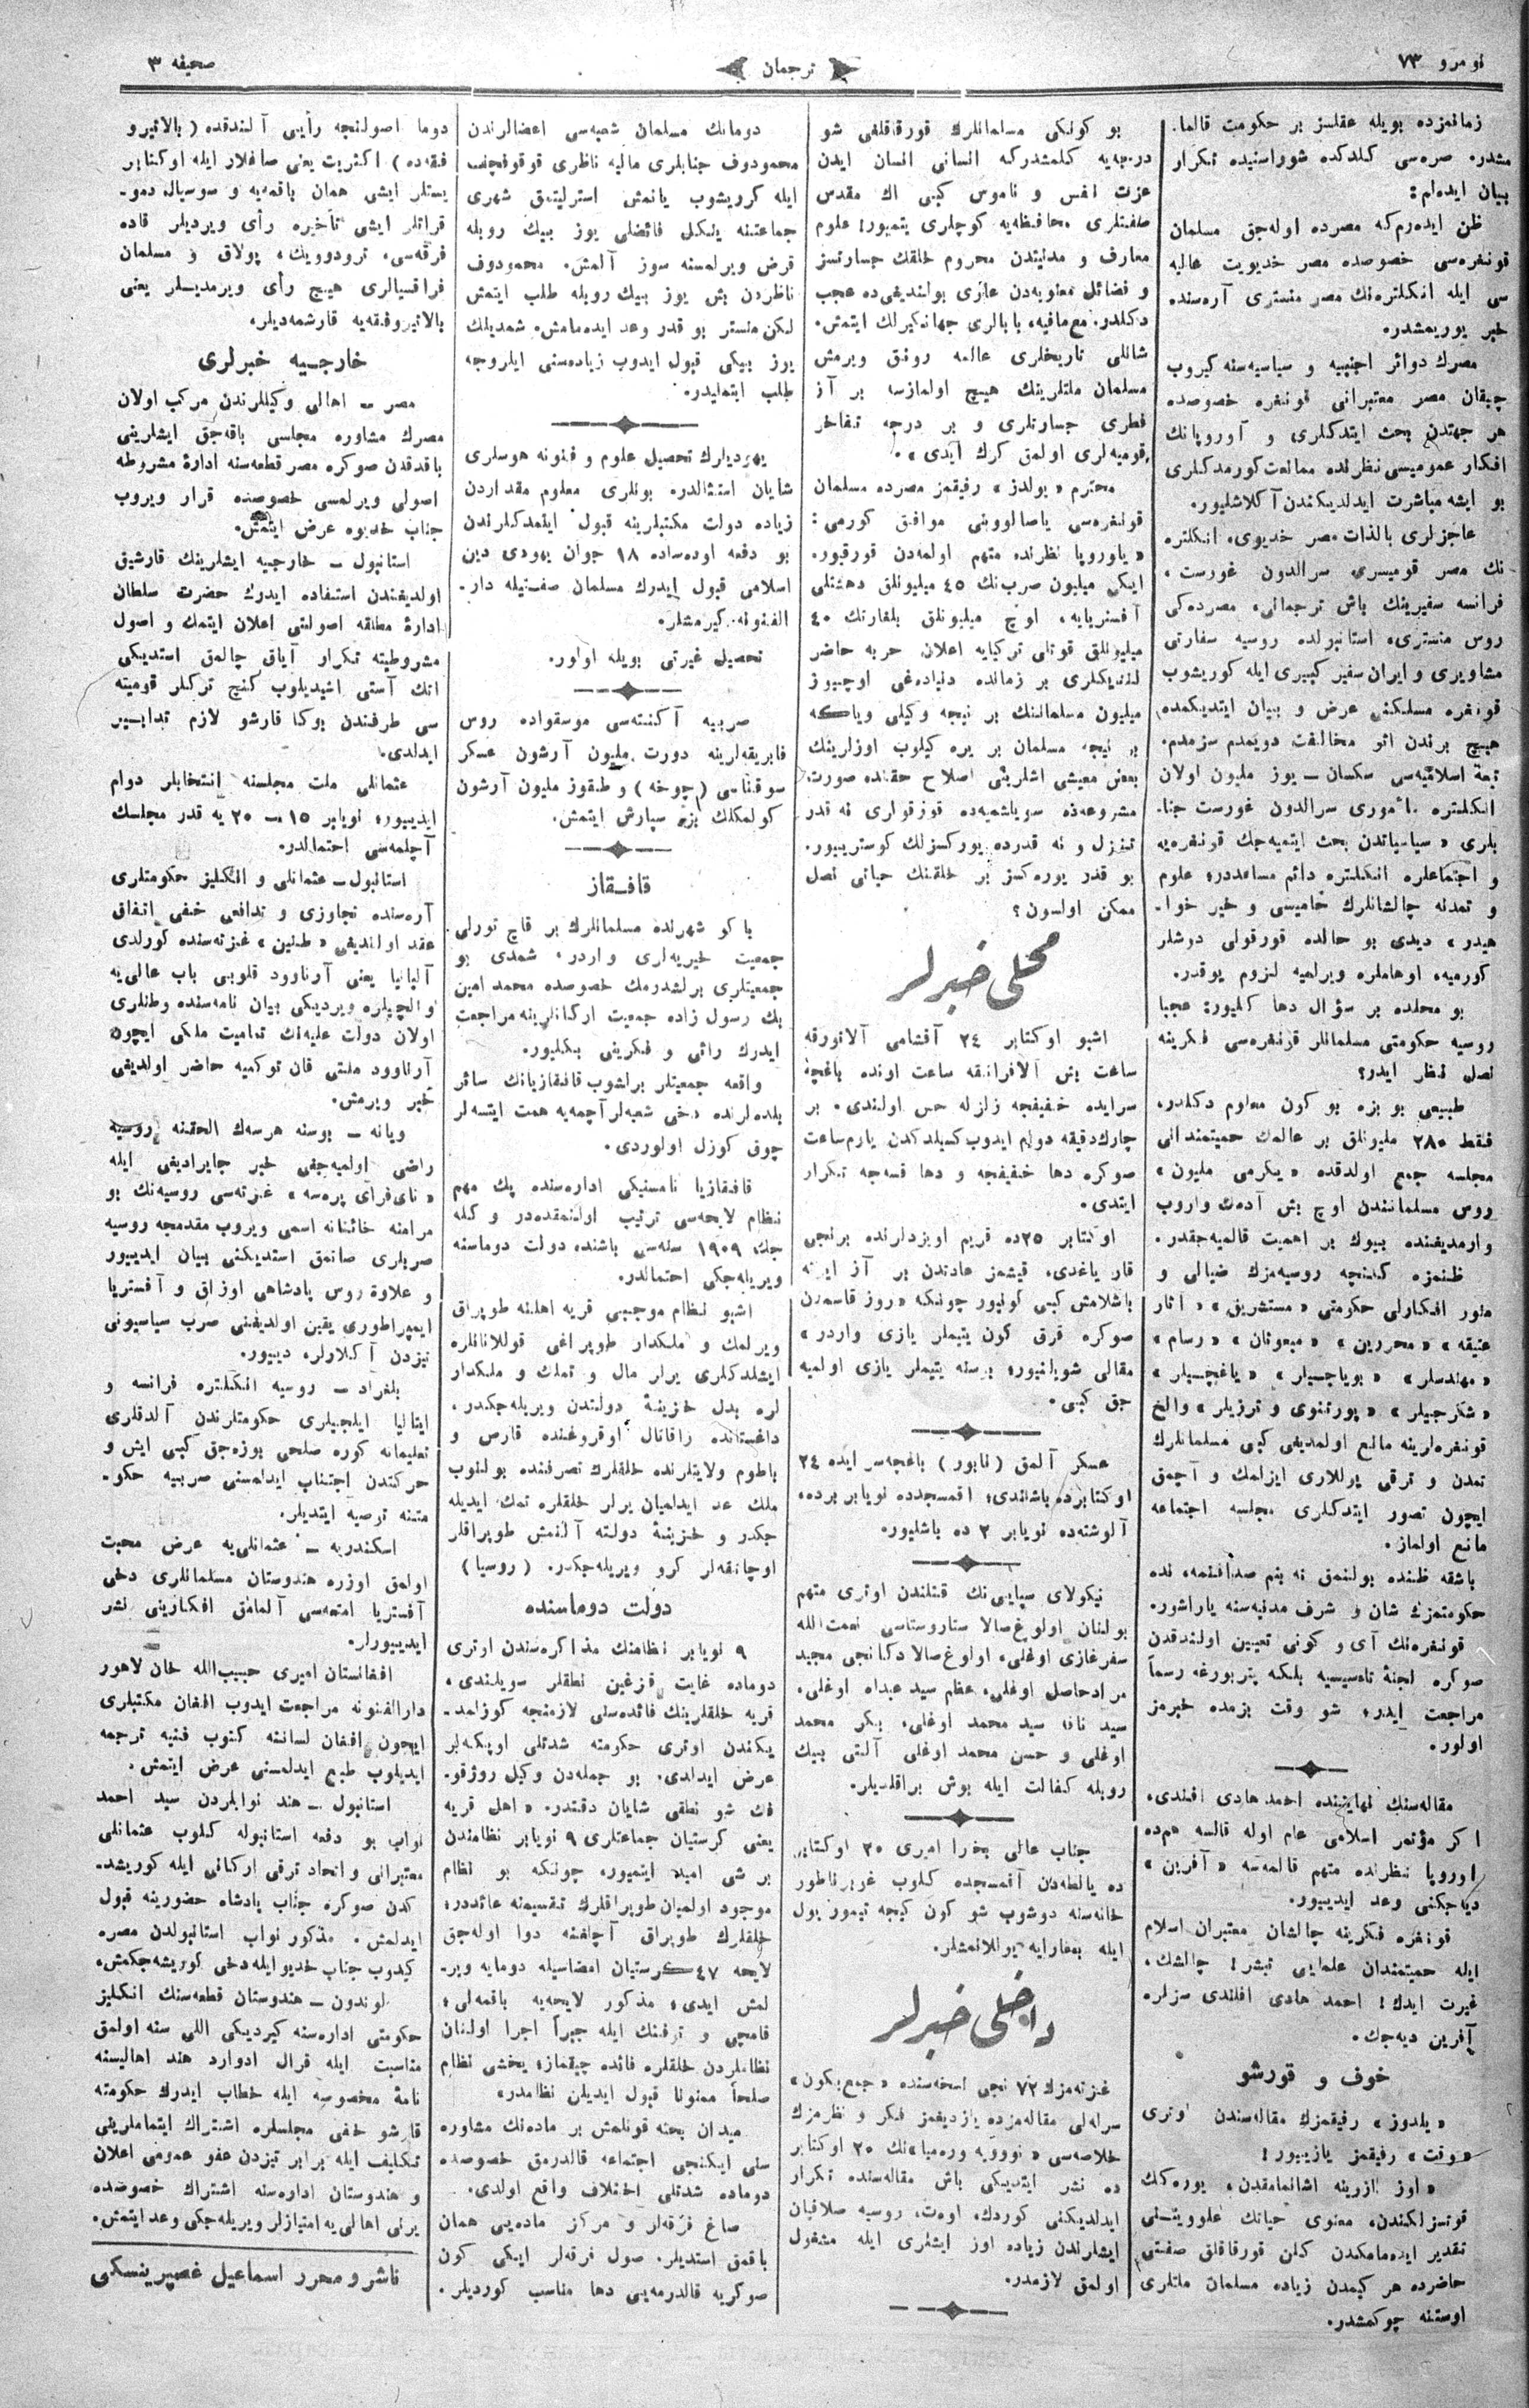 نومرو ۷۳
ترجمان
صحیفه ۳
زمانمزده بویله عقلسز بر حکومت قالما.
مشدر. صره‌سی کلدکده شوراسنیده تکرار
بیان ایده‌لم:
ظن ایده‌رم‌که مصرده اوله‌جق مسلمان
قونغره‌سی خصوصده مصر خدیویت عالیه
سی ایله انکلتره‌نك مصر منستری آره‌سنده
خبر یوریمشدر.
مصرك دوائر اجنبیه و سیاسیه‌سنه کیروب
چیقان مصر معتبرانی قونغره خصوصده
هر جهتدن بحث ایتدکلری و آوروپانك
افکار عمومیسی نظرنده ممانعت کورمدکلری
بو ایشه مباشرت ایدلدیکندن آکلاشلیور.
عاجزلری بالذات مصر خدیوی، انکلتره
نك مصر قومیسری سرالدون غورست،
فرانسه سفیرینك باش ترجمانی، مصرده‌کی
روس منستری، استانبولده روسیه سفارتی
مشاویری و ایران سفیر کبیری ایله کوریشوب
قونغره مسلکنی عرض و بیان ایتدیکمده
هیچ برندن اثو مخالفت دویمدم سزمدم.
تبعهٔ اسلامیه‌سی سکسان ــ یوز ملیون اولان
انکلتره مأموری سرالدون غورست جنا.
بلری «سیاسیاتدن بحث ایتمیه‌جك قونغره‌یه
و اجتماعلره انکلتره دائم مساعددر؛ علوم
و تمدنه چالشانلرك حامیسی و خیر خوا.
هیدر» دیدی بو حالده قورقولی دوشلر
کورمیه، اوهاملره ویرلمیه لزوم یوقدر.
بو محلده بر سؤال دها کلیور: عجبا
روسیه حکومتی مسلمانلر قونغره‌سی فکرینه
نصل نظر ایدر؟
طبیعی بو بزه بو کون معلوم دکلدر،
فقط ۲۸۰ ملیونلق بر عالمك حمیتمندانی
مجلسه جمع اولدقده «یکرمی ملیون»
روس مسلمانندن اوچ بش آدمك واروب
وارمدیغنده بیوك بر اهمیت قالمیه‌جقدر.
ظنمزه کلنجه روسیه‌مزك ضیالی و
منور افکارلی حکومتی «مستشریق» «آثار
عتیقه» «محررین» «مبعوثان» «رسام»
«مهندسلر» «بویاجیلر» «یاغچیلر»
«شکرجیلر» «پورتنوی و ترزیلر» والخ
قونغره‌لرینه مانع اولمدیغی کبی مسلمانلرك
تمدن و ترقی یوللاری ایزلمك و آچمق
ایچون تصور ایتدکلری مجلسه اجتماعه
مانع اولماز.
باشقه ظنده بولنمق نه بنم صدأقتمه، نده
حکومتمزڭ شان و شرف مدنیه‌سنه یاراشور.
قونغره‌نك آی و کونی تعیین اولندقدن
صوکره لجنهٔ تأسیسیه بلکه پتربورغه رسماً
مراجعت ایدر، شو وقت بزمده خبرمز
اولور.
مقاله‌سنك نهایتنده احمد هادی افندی،
اکر مؤتمر اسلامی عام اوله قالسه هم‌ده
اوروپا نظرنده متهم قالمه‌سه «آفرین»
دیه‌جکنی وعد ایدییور.
قونغره فکرینه چالشان معتبران اسلام
ایله حمیتمندان علمایی تبشر! چالشك،
غیرت ایدك! احمد هادی افندی سزلره
آفرین دیه‌جك.
خوف و قورشو
«یلدوز» رفیقمزك مقاله‌سندن اوتری
«وقت» رفیقمز یازییور!
«اوز ازرینه اشانمامقدن، یوره‌کك
قوتسزلکندن، معنوی حیاتك علوویتنی
تقدیر ایده‌مامکدن کلن قورقاقلق صفتی
حاضرده هر کیمدن زیاده مسلمان ملتلری
اوستنه چوکمشدر.
بو کونکی مسلمانلرك قورقاقلغی شو
درجه‌یه کلمشدرکه انسانی انسان ایدن
عزت نفس و ناموس کبی اك مقدس
صفتلری محافظه‌یه کوچلری یتمیور! علوم
معارف و مدنیتدن محروم خلقك جسارتسز
و فضائل معنویه‌دن عاری بولندیغی‌ده عجب
دکلدر. مع‌مافیه، بابالری جهانکیرلك ایتمش.
شانلی تاریخلری عالمه رونق ویرمش
مسلمان ملتلرینك هیچ اولمازسه بر آز
فطری جسارتلری و بر درجه تفاخر
قومیه‌لری اولمق کرك آیدی».
محترم «یولدز» رفیقمز مصرده مسلمان
قونغره‌سی یاصالووینی موافق کورمی:
«یاوروپا نظرنده متهم اولمه‌دن قورقیور.
ایکی میلیون صرب‌نك ۴۵ میلیونلق دهشتلی
آفستریایه، اوچ میلیونلق بلغارنك ۴۰
میلیونلق قوتلی ترکیایه اعلان حربه حاضر
لندیکلری بر زمانده دنیاده‌غی اوچیوز
میلیون مسلماننك بر نیجه وکیلی ویاکه
بر نیجه مسلمان بر یره کیلوب اوزلرینك
بعض معیشی اشلرینی اصلاح حقنده صورت
مشروعه‌ده سویاشمیه‌ده قورقولری نه قدر
تنزل و نه قدرده یورکسزلك کوستریبور.
بو قدر یوره‌کسز بر خلقنك حیاتی نصل
ممکن اولسون؟
محلی خبرلر
اشبو اوکتابر ۲۴ آقشامی آلاتورقه
ساعت بش آلافرانقه ساعت اونده باغچهٔ
سرایده خفیفجه زلزله حس اولندی. بر
چارك‌دقیقه دوام ایدوب کسیلدکدن یارم‌ساعت
صوکره دها خفیفجه و دها قسه‌جه تکرار
ایتدی.
اوکتابر ۲۵ده قریم اویزدلرنده برنجی
قار یاغدی، قیشمز عادتدن بر آز ایرته
باشلامش کبی کلنیور چونکه «روز قاسمدن
صوکره قرق کون یتیملر یازی واردر»
مقالی شویلانیور؛ بر سنه یتیملر یازی اولمیه
جق کبی.
عسکر آلمق (نابور) باغچه‌سرایده ۲۴
اوکتابرده باشلاندی؛ اقمسجدده نویابر برده،
آلوشته‌ده نویابر ۲ ده باشلیور.
نیکولای سپایی‌نك قتلندن اوتری متهم
بولنان اولوغ‌صالا ستاروستاسی نعمت‌الله
سفرغازی اوغلی، اولوغ‌صالا دکانجی مجید
مرادحاصل اوغلی، عظم سید عبدالله اوغلی،
سید نافه سید محمد اوغلی، بکر محمد
اوغلی و حسن محمد اوغلی آلتی بیك
روبله کفالت ایله بوش براقلدیلر.
جناب عالی بخرا امیری ۳۰ اوکتابر
ده یالطه‌دن آقمسجده کلوب غوبرناطور
خانه‌سنه دوشوب شو کون کیجه تیمور یول
ایله بخارایه یوللانمشلر.
داخلی خبرلر
غزته‌مزك ۷۲ نجی نسخه‌سنده «جمع‌یکون»
سرله‌لی مقاله‌مزده یازدیغمز فکر و نظرمزك
خلاصه‌سی «نوویه وره‌میا»نك ۲۰ اوکتابر
ده نشر ایتدیکی باش مقاله‌سنده تکرار
ایدلدیکنی کوردك. اوه‌ت، روسیه صلافیان
ایشلرندن زیاده اوز ایشلری ایله مشغول
اولمق لازمدر.
دومانك مسلمان شعبه‌سی اعضالرندن
محمودوف جنابلری مالیه ناظری قوقوفچف
ایله کوریشوب یانمش استرلیتمق شهری
جماعتنه یلکل فائضلی یوز بیك روبله
قرض ویرلمسنه سوز آلمش. محمودوف
ناظردن بش یوز بیك روبله طلب ایتمش
لکن منستر بو قدر وعد ایده‌مامش. شمدیلك
یوز بیکی قبول ایدوب زیاده‌سنی ایلروجه
طلب ایتملیدر.
یهودیلرك تحصیل علوم و فنونه هوسلری
شایان استثالدره بونلری معلوم مقداردن
زیاده دولت مکتبلرینه قبول ایتمدکلرندن
بو دفعه اوده‌ساده ۱۸ جوان یهودی دین
اسلامی قبول ایدرك مسلمان صفتیله دار.
الفنونه کیرمشلر.
تحصیل غیرتی بویله اولور.
صربیه آکنته‌سی موسقواده روس
فابریقه‌لرینه دورت ملیون آرشون عسکر
سوقناسی (چوخه) و طقوز ملیون آرشون
کولمکلك بزه سپارش ایتمش.
قافقاز
باکو شهرنده مسلمانلرك بر قاچ تورلی
جمعیت خیریه‌لری واردر، شمدی بو
جمعیتلری برلشدرمك خصوصده محمد امین
بك رسول زاده جمعیت ارکانلرینه مراجعت
ایدرك رائی و فکرینی بکلیور.
واقعه جمعیتلر برلشوب قافقازیانك سائر
بلده‌لرنده دخی شعبه‌لر آچمه‌یه همت ایتسه‌لر
چوق کوزل اولوردی.
قافقازیا نامستنیکی اداره‌سنده پك مهم
نظام لایحه‌سی ترتیب اولنمقده‌در و کله
جك ۱۹۰۹ سنه‌سی باشنده دولت دوماسنه
ویریله‌جکی احتمالدر.
اشبو نظام موجبی قریه اهلنه طوپراق
ویرلمك و ملکدار طوپراغی قوللانانلره
ایشلدکلری یرلر مال و تملك و ملکدار
لره بدل خزینهٔ دولتدن ویریله‌جکدر.
داغستانده راقاتال اوقروغنده قارص و
باطوم ولایتلرنده خلقلرك تصرفنده بولنوب
ملك عد ایدلمیان یرلر خلقلره تمك ایدیله
جکدر و خزینهٔ دولته آلنمش طوپراقلر
اوچانقه‌لر کرو ویریله‌جکدر. (روسیا)
دولت دوماسنده
۹ نویابر نظامنك مذاکره‌سندن اوتری
دوماده غایت قزغین نطقلر سویلندی،
قریه خلقلرینك فائده‌سی لازمنجه کوزلمد.
یکندن اوتری حکومته شدتلی اوپکه‌لر
عرض ایدلدی. بو جمله‌دن وکیل روژقو.
فك شو نطقی شایان دقتدر. «اهل قریه
یعنی کرستیان جماعتلری ۹ نویابر نظامندن
بر شی امید ایتمیور، چونکه بو نظام
موجود اولمیان طوپراقلرك تقسیمنه عائددر؛
خلقلرك طوپراق آچلغنه دوا اوله‌جق
لایحه ۴۷ کرستیان امضاسیله دومایه ویر.
لمش ایدی؛ مذکور لایحه‌یه باقمه‌لی؛
قامچی و ترفنك ایله جبراً اجرا اولنان
نظاملردن خلقلره فائده چیقماز؛ یخشی نظام
صلحاً ممنوناً قبول ایدیلن نظامدر»
میدان بحثه قونلمش بر ماده‌نك مشاوره
سنی ایکنجی اجتماعه قالدرمق خصوصده
دوماده شدتلی اختلاف واقع اولدی.
صاغ فرقه‌لر و مرکز ماده‌یی همان
باقمق استدیلر. صول فرقه‌لر ایکی کون
صوکریه قالدرمه‌یی دها مناسب کوردیلر.
دوما اصولنجه رأیی آلندقده (بالاتیرو
فقه‌ده) اکثریت یعنی صاغلار ایله اوکتابر
یستلر ایشی همان باقمه‌یه و سوسیال دمو.
قراتلر ایشی تأخیره رأی ویردیلر قاده
فرقه‌سی، ترودوویك، پولاق و مسلمان
فراقسیالری هیچ رأی ویرمدیلر یعنی
بالاتیروفقه‌یه قارشمه‌دیلر.
خارجیه خبرلری
مصر ــ اهالی وکیللرندن مرکب اولان
مصرك مشاوره مجلسی باقه‌جق ایشلرینی
باقدقدن صوکره مصر قطعه‌سنه ادارهٔ مشروطه
اصولی ویرلمسی خصوصده قرار ویروب
جناب خدیوه عرض ایتمش.
استانبول ــ خارجیه ایشلرینك قارشیق
اولدیغندن استفاده ایدرك حضرت سلطان
ادارهٔ مطلقه اصولنی اعلان ایتمك و اصول
مشروطیته تکرار آیاق چالمق استدیکی
انك آستی اشیدیلوب کنج ترکلر قومیته
سی طرفندن بوکا قارشو لازم تدابیر
ایدلدی.
عثمانلی ملت مجلسنه انتخابلر دوام
ایدییور؛ نویابر ۱۵ ــ ۲۰ یه قدر مجلسك
آچلمه‌سی احتمالدر.
استانبول ــ عثمانلی و انکلیز حکومتلری
آره‌سنده تجاوزی و تدافعی خفی اتفاق
عقد اولندیغی «طنین» غزته‌سنده کورلدی
آلبانیا یعنی آرناوود قلوبی باب عالی‌یه
و الچیلره ویردیکی بیان نامه‌سنده وطنلری
اولان دولت علیه‌نك تمامیت ملکی ایچون
آرناوود ملتی قان توکمیه حاضر اولدیغی
خبر ویرمش.
ویانه ــ بوسنه هرسه‌ك الحقنه روسیه
راضی اولمیه‌جغی خبر جایرادیغی ایله
«نای‌فرای پره‌سه» غزته‌سی روسیه‌نك بو
مرامنه خائنانه اسمی ویروب مقدمجه روسیه
صربلری صاتمق استدیکنی بیان ایدییور
و علاوة روس پادشاهی اوزاق و آفستریا
ایمپراطوری یقین اولدیغنی صرب سیاسیونی
تیزدن آکلارلر، دییور.
بلغراد ــ روسیه انکلتره فرانسه و
ایتالیا ایلچیلری حکومتلرندن آلدقلری
تعلیماته کوره صلحی بوزه‌جق کبی ایش و
حرکتدن اجتناب ایدلمسنی صربیه حکو.
متنه توصیه ایتدیلر.
اسکندریه ــ عثمانلی‌یه عرض محبت
اولمق اوزره هندوستان مسلمانلری دخی
آفستریا امتعه‌سی آلمامق افکارینی نشر
ایدییورلر.
افغانستان امیری حبیب‌الله خان لاهور
دارالفنونه مراجعت ایدوب افغان مکتبلری
ایچون افغان لسانته کتوب فنیه ترجمه
ایدیلوب طبع ایدلمسنی عرض ایتمش.
استانبول ــ هند نوابلردن سید احمد
نواب بو دفعه استانبوله کلوب عثمانلی
معتبرانی و اتحاد ترقی ارکانی ایله کوریشد.
کدن صوکره جناب پادشاه حضورینه قبول
ایدلمش. مذکور نواب استانبولدن مصره
کیدوب جناب خدیو ایله دخی کوریشه‌جکمش.
لوندون ــ هندوستان قطعه‌سنك انکلیز
حکومتی اداره‌سنه کیردیکی اللی سنه اولمق
مناسبت ایله قرال ادوارد هند اهالیسنه
نامهٔ مخصوصه ایله خطاب ایدرك حکومته
قارشو خفی مجلسلره اشتراك ایتماملرینی
تکلیف ایله برابر تیزدن عفو عمومی اعلان
و هندوستان اداره‌سنه اشتراك خصوصده
یرلی اهالی‌یه امتیازلر ویریله‌جکی وعد ایتمش.
ناشر و محرر اسماعیل غصپرینسکی